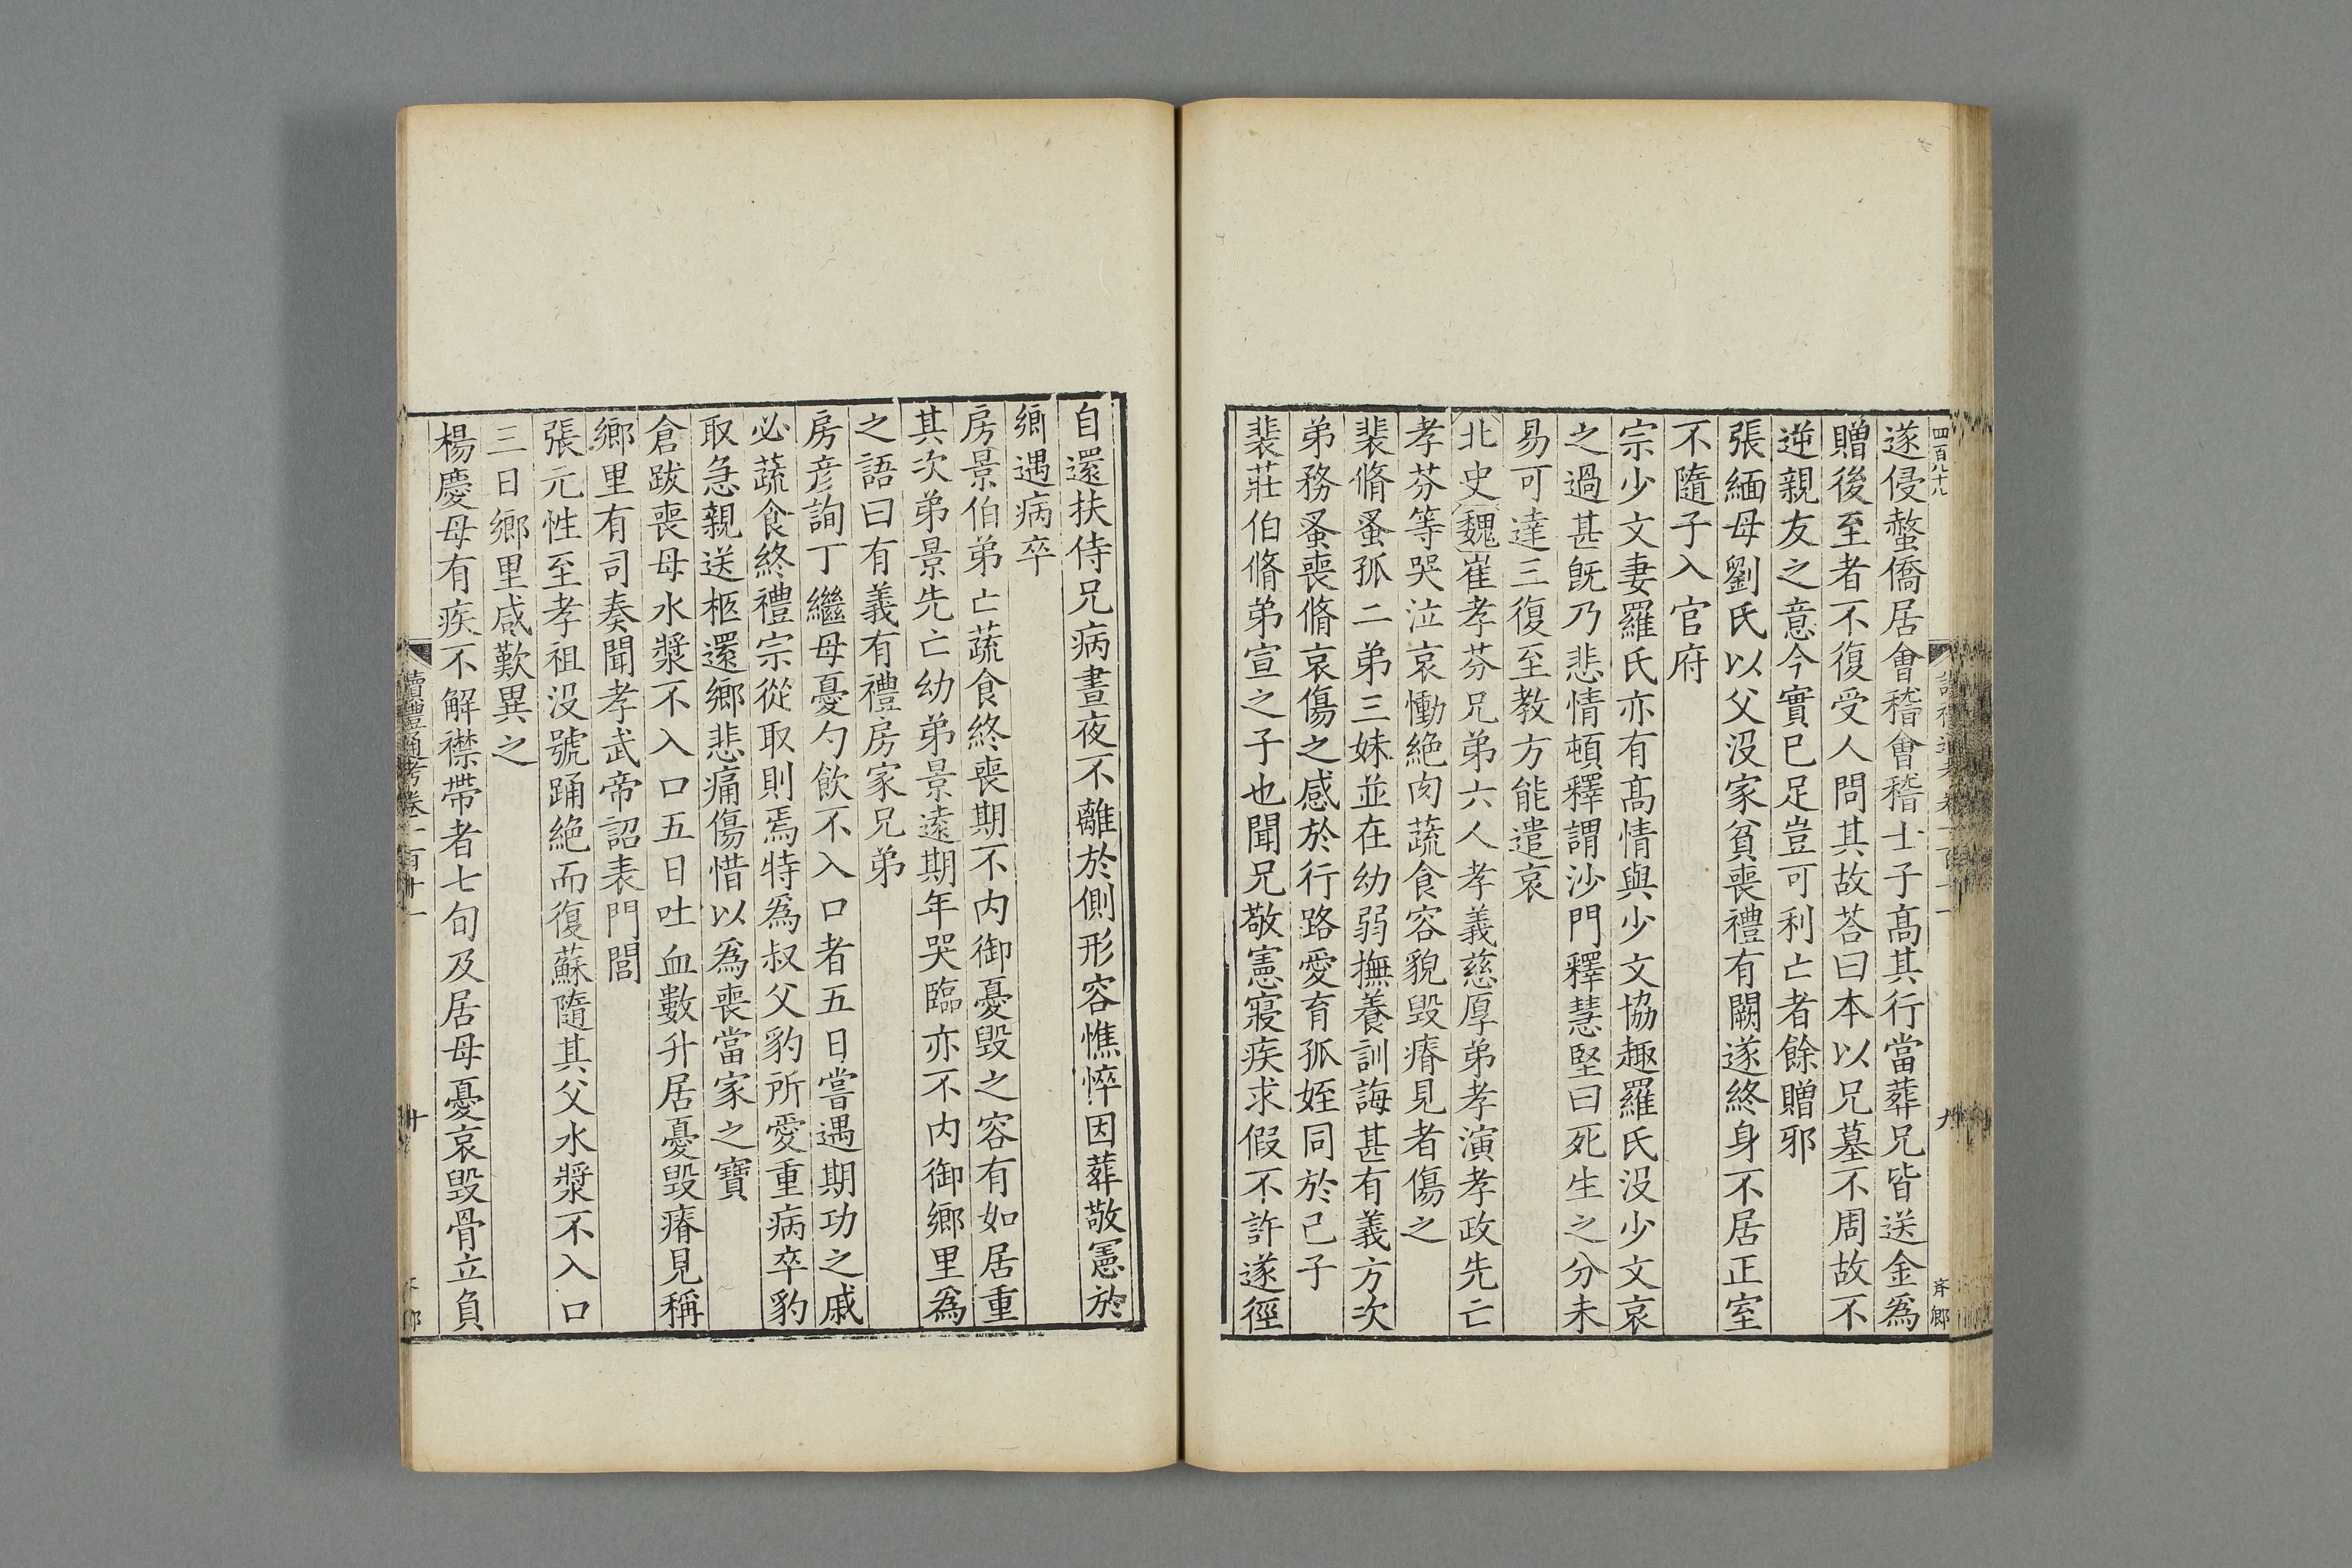 四百八十八
遂侵螯僑居會稽會稽士子高其行當葬兄皆送金爲
贈後至者不復受人問其故荅曰本以兄墓不周故不
逆親友之意今實已足豈可利亡者餘贈邪
張緬母劉氏以父没家貧喪禮有闕遂終身不居正室
不隨子入官府
宗少文妻羅氏亦有高情與少文協趣羅氏没少文哀
之過甚旣乃悲情頓釋謂沙門釋慧堅曰死生之分未
易可達三復至教方能遣哀
北史魏崔孝芬兄弟六人孝義慈厚弟孝演孝政先亡
孝芬等哭泣哀慟絶肉蔬食容貌毁瘠見者傷之
裴脩蚤孤二弟三妹並在幼弱撫養訓誨甚有義方次
弟務蚤喪脩哀傷之感於行路愛育孤姪同於己子
裴莊伯脩弟宣之子也聞兄敬憲寢疾求假不許遂徑
九
自還扶侍兄病晝夜不離於側形容憔悴因葬敬憲於
鄉遇病卒
房景伯弟亡蔬食終喪期不内御憂毁之容有如居重
其次弟景先亡幼弟景遠期年哭臨亦不内御鄉里爲
之語曰有義有禮房家兄弟
房彦詢丁繼母憂勺飲不入口者五日嘗遇期功之戚
必蔬食終禮宗從取則焉特爲叔父豹所愛重病卒豹
取急親送柩還鄉悲痛傷惜以爲喪當家之寶
倉跋喪母水漿不入口五日吐血數升居憂毁瘠見稱
鄉里有司奏聞孝武帝詔表門閭
張元性至孝祖没號踊絶而復蘇隨其父水漿不入口
三日鄉里感歎異之
楊慶母有疾不解襟帶者七旬及居母憂哀毁骨立負
讀禮通考卷一百十一
十